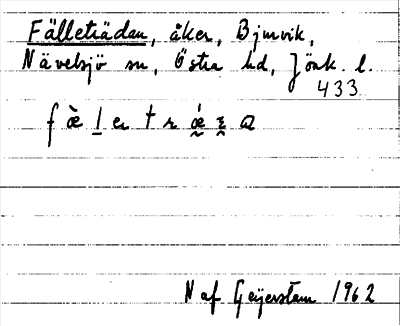 Fälleträdan, åker, Bjurvik,
Nävelsjö sn, Östra hd, Jönk. l.
433
f æ̀ l e t r ǽ a
N af Geijerstam 1962